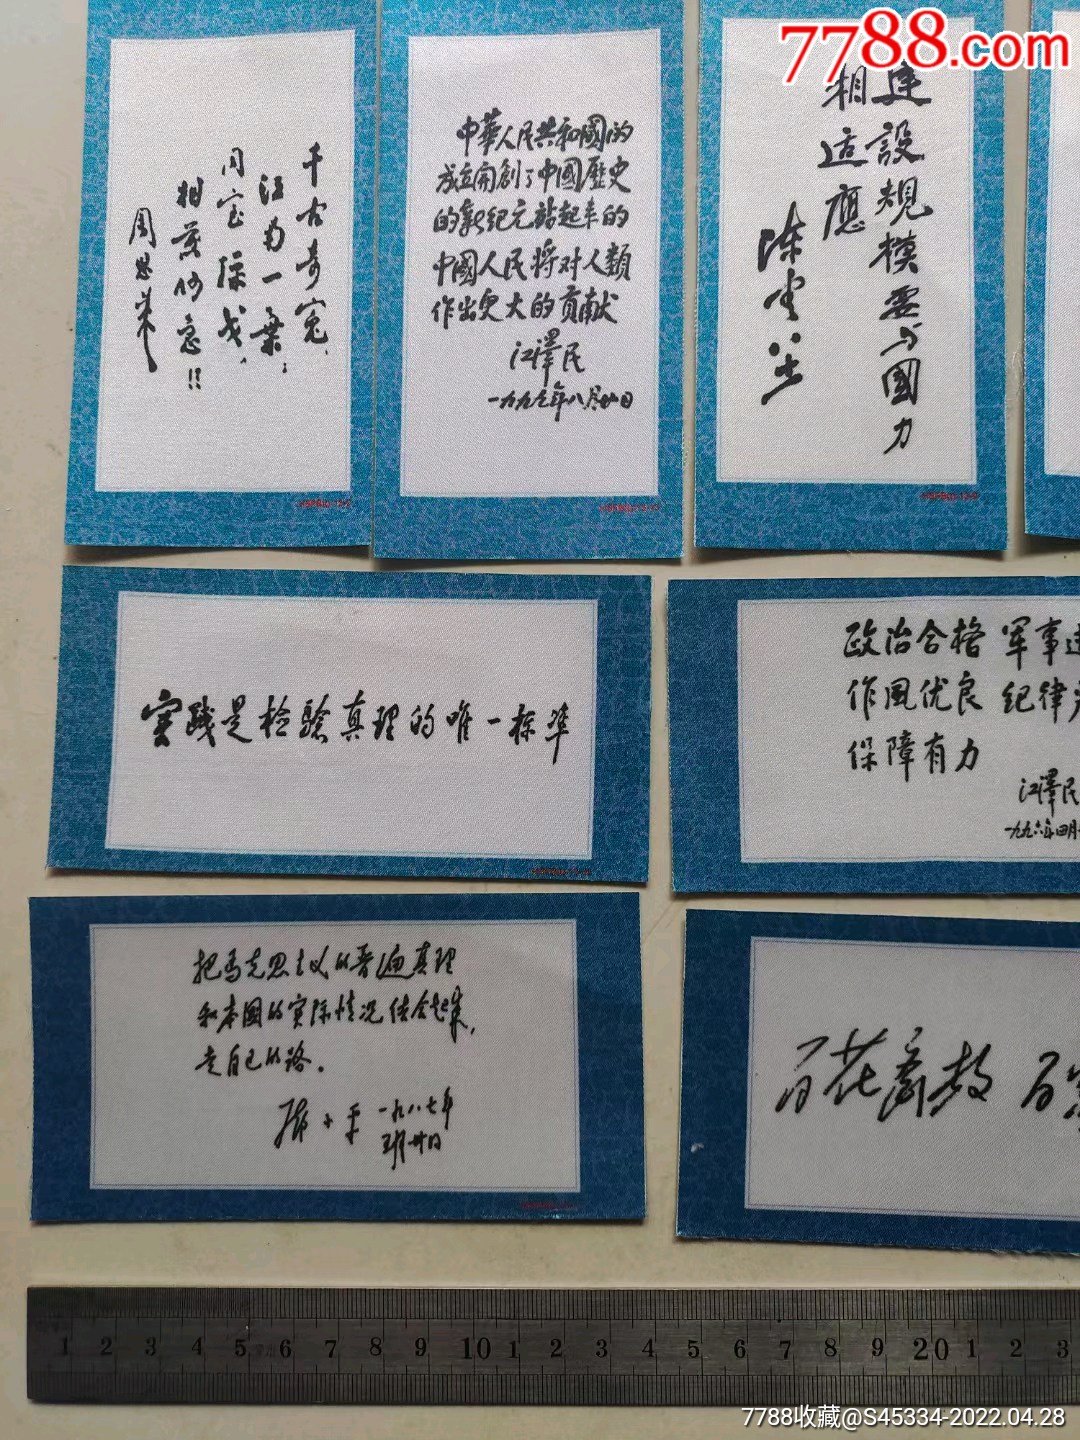 7788.com
千古奇冤、
江南一葉；
同室操戈，
相煎何急！！
周恩来
中華人民共和國的
成立開創了中國歷史
的新纪元站起来的
中國人民将对人類
作出更大的贡献
江澤民
建設規模要与國力
相适應
陈雲
实践是检验真理的唯一标准
政治合格 军事
作风优良 纪律
保障有力
江澤民
一九九六年四月
把马克思主义的普遍真理
和本国的实际情况结合起来，
走自己的路。
邓小平 一九八七年
百花齐放 百
1 2 3 4 5 6 7 8 9 10 1 2 3 4 5 6 7 8 9 20 1 2 3
7788收藏@S45334-2022.04.28